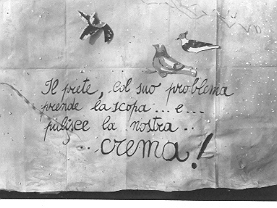 Il prete, col suo problema
prende la scopa... e...
pulisce la nostra..
..crema!